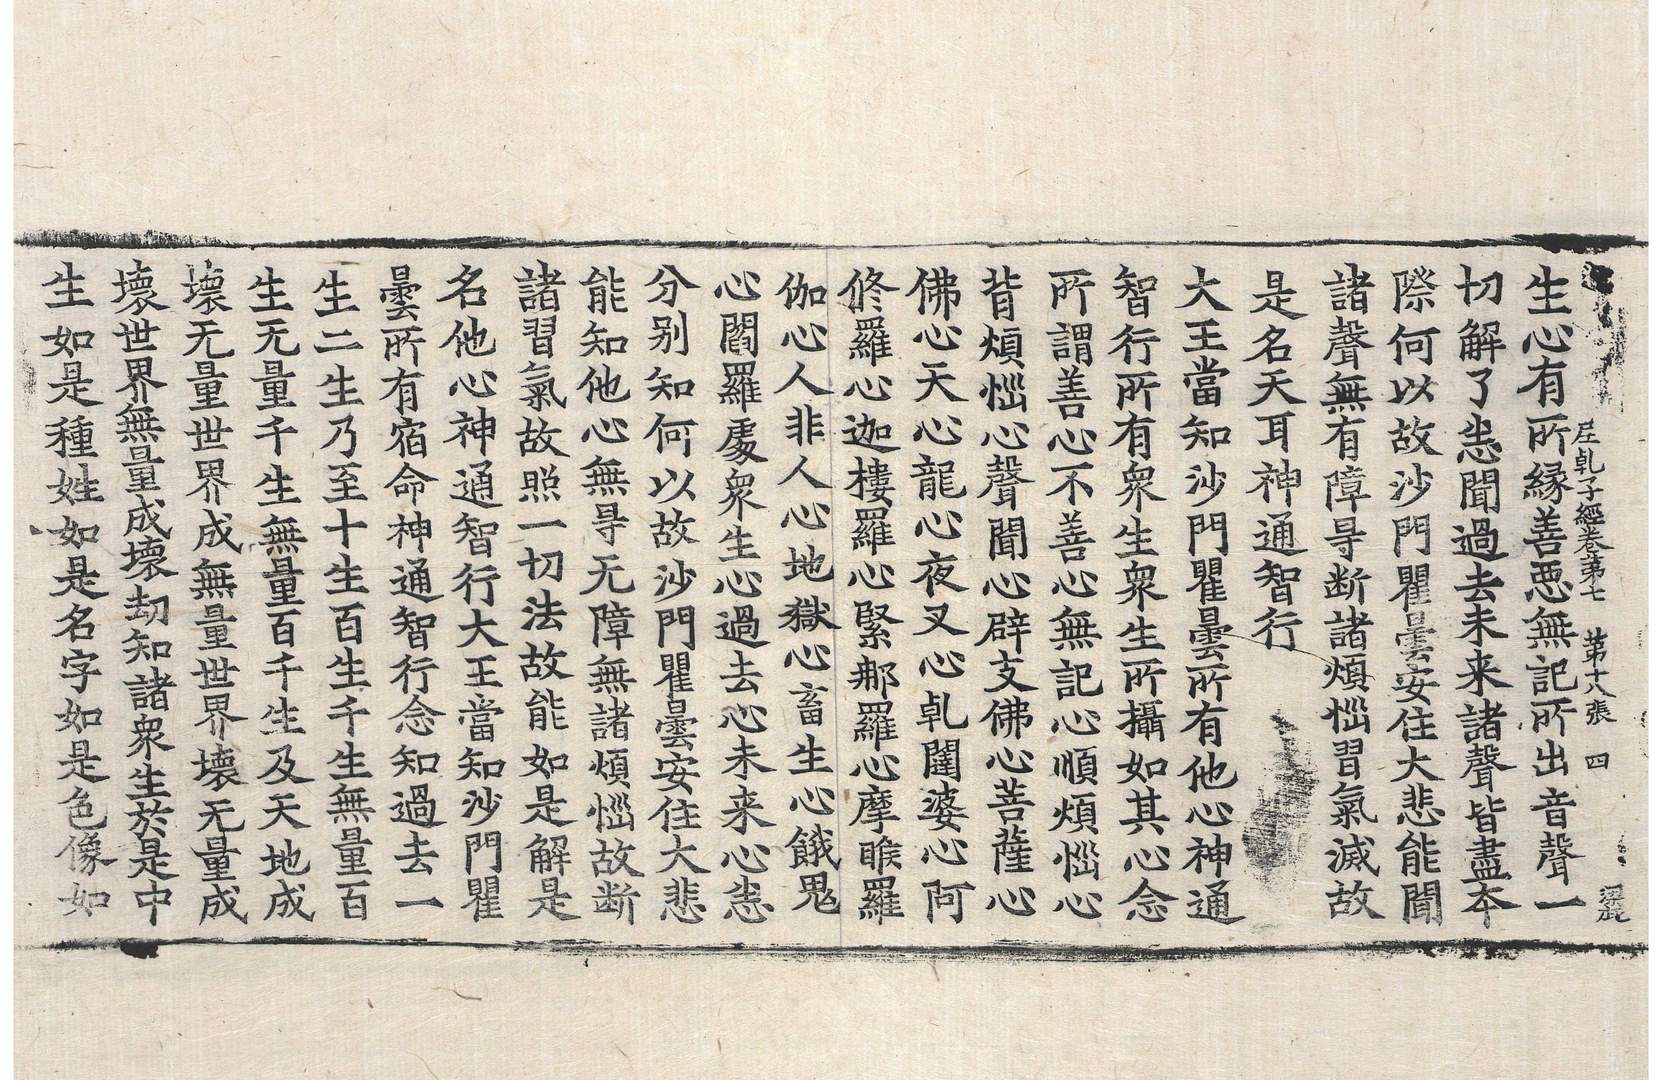 生心有所縁善悪無記所出音聲一
尼乹子經卷第七 第十八張 四
切解了悉聞過去未来諸聲皆盡本
際何以故沙門瞿曇安住大悲能聞
諸聲無有障㝵断諸煩惱習氣滅故
是名天耳神通智行
大王當知沙門瞿曇所有他心神通
智行所有衆生衆生所攝如其心念
所謂善心不善心無記心順煩惱心
背煩惱心聲聞心辟支佛心菩薩心
佛心天心龍心夜叉心乹闥婆心阿
修羅心迦樓羅心緊那羅心摩睺羅
伽心人非人心地獄心畜生心餓鬼
心閻羅處衆生心過去心未来心悉
分别知何以故沙門瞿曇安住大悲
能知他心無㝵无障無諸煩惱故断
諸習氣故照一切法故能如是解是
名他心神通智行大王當知沙門瞿
曇所有宿命神通智行念知過去一
生二生乃至十生百生千生無量百
生无量千生無量百千生及天地成
壊无量世界成無量世界壊无量成
壊世界無量成壊劫知諸衆生於是中
生如是種姓如是名字如是色像如